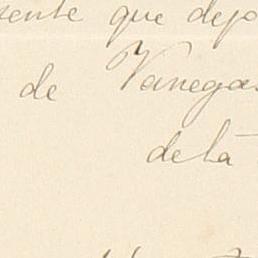 sente que dejo
de Vanegas
de la